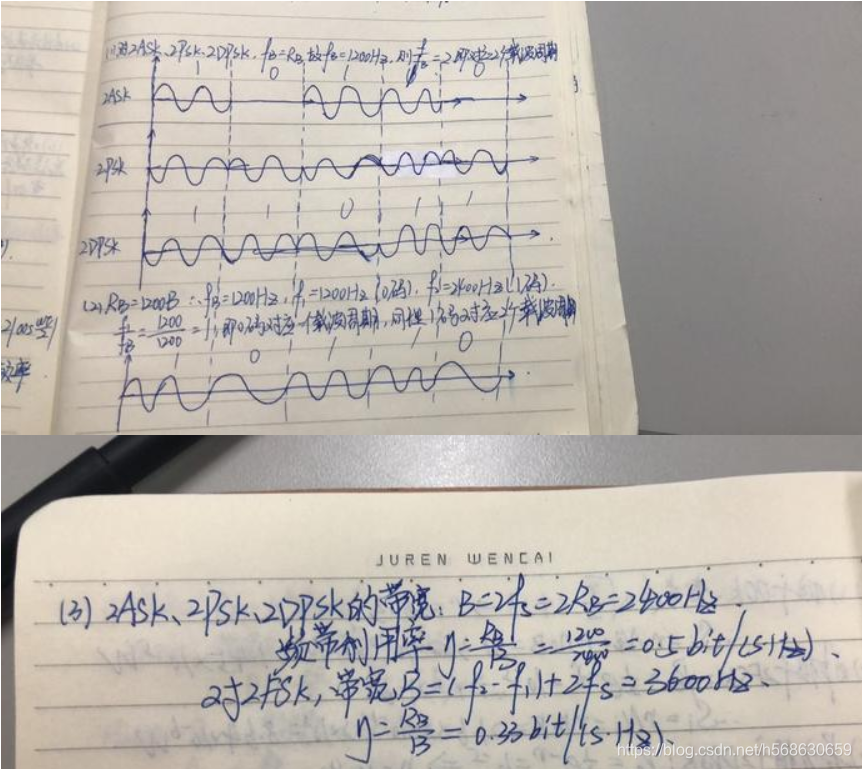 (1)对2ASK、2PSK、2DPSK, fB=RB 故fB=1200Hz, 则 f/fB=2 即对应2个载波周期
1 0 1 1 0
2ASK
2PSK
1 1 0 1 1
2DPSK
(2) RB=1200B ∴fB=1200Hz, f1=1200Hz (0码). f2=2400Hz(1码).
2/cos
f1/fB=1200/1200=1, 即0码对应一个载波周期, 同理1码对应2个载波周期
频率.
1 0 1 1 0
JUREN WENCAI
(3) 2ASK、2PSK、2DPSK的带宽: B=2fs=2RB=2400Hz.
频带利用率 η=RB/B=1200/2400=0.5bit/(s·Hz).
对2FSK, 带宽B=|f2-f1|+2fs=3600Hz.
η=RB/B=0.33bit/(s·Hz).
https://blog.csdn.net/h568630659